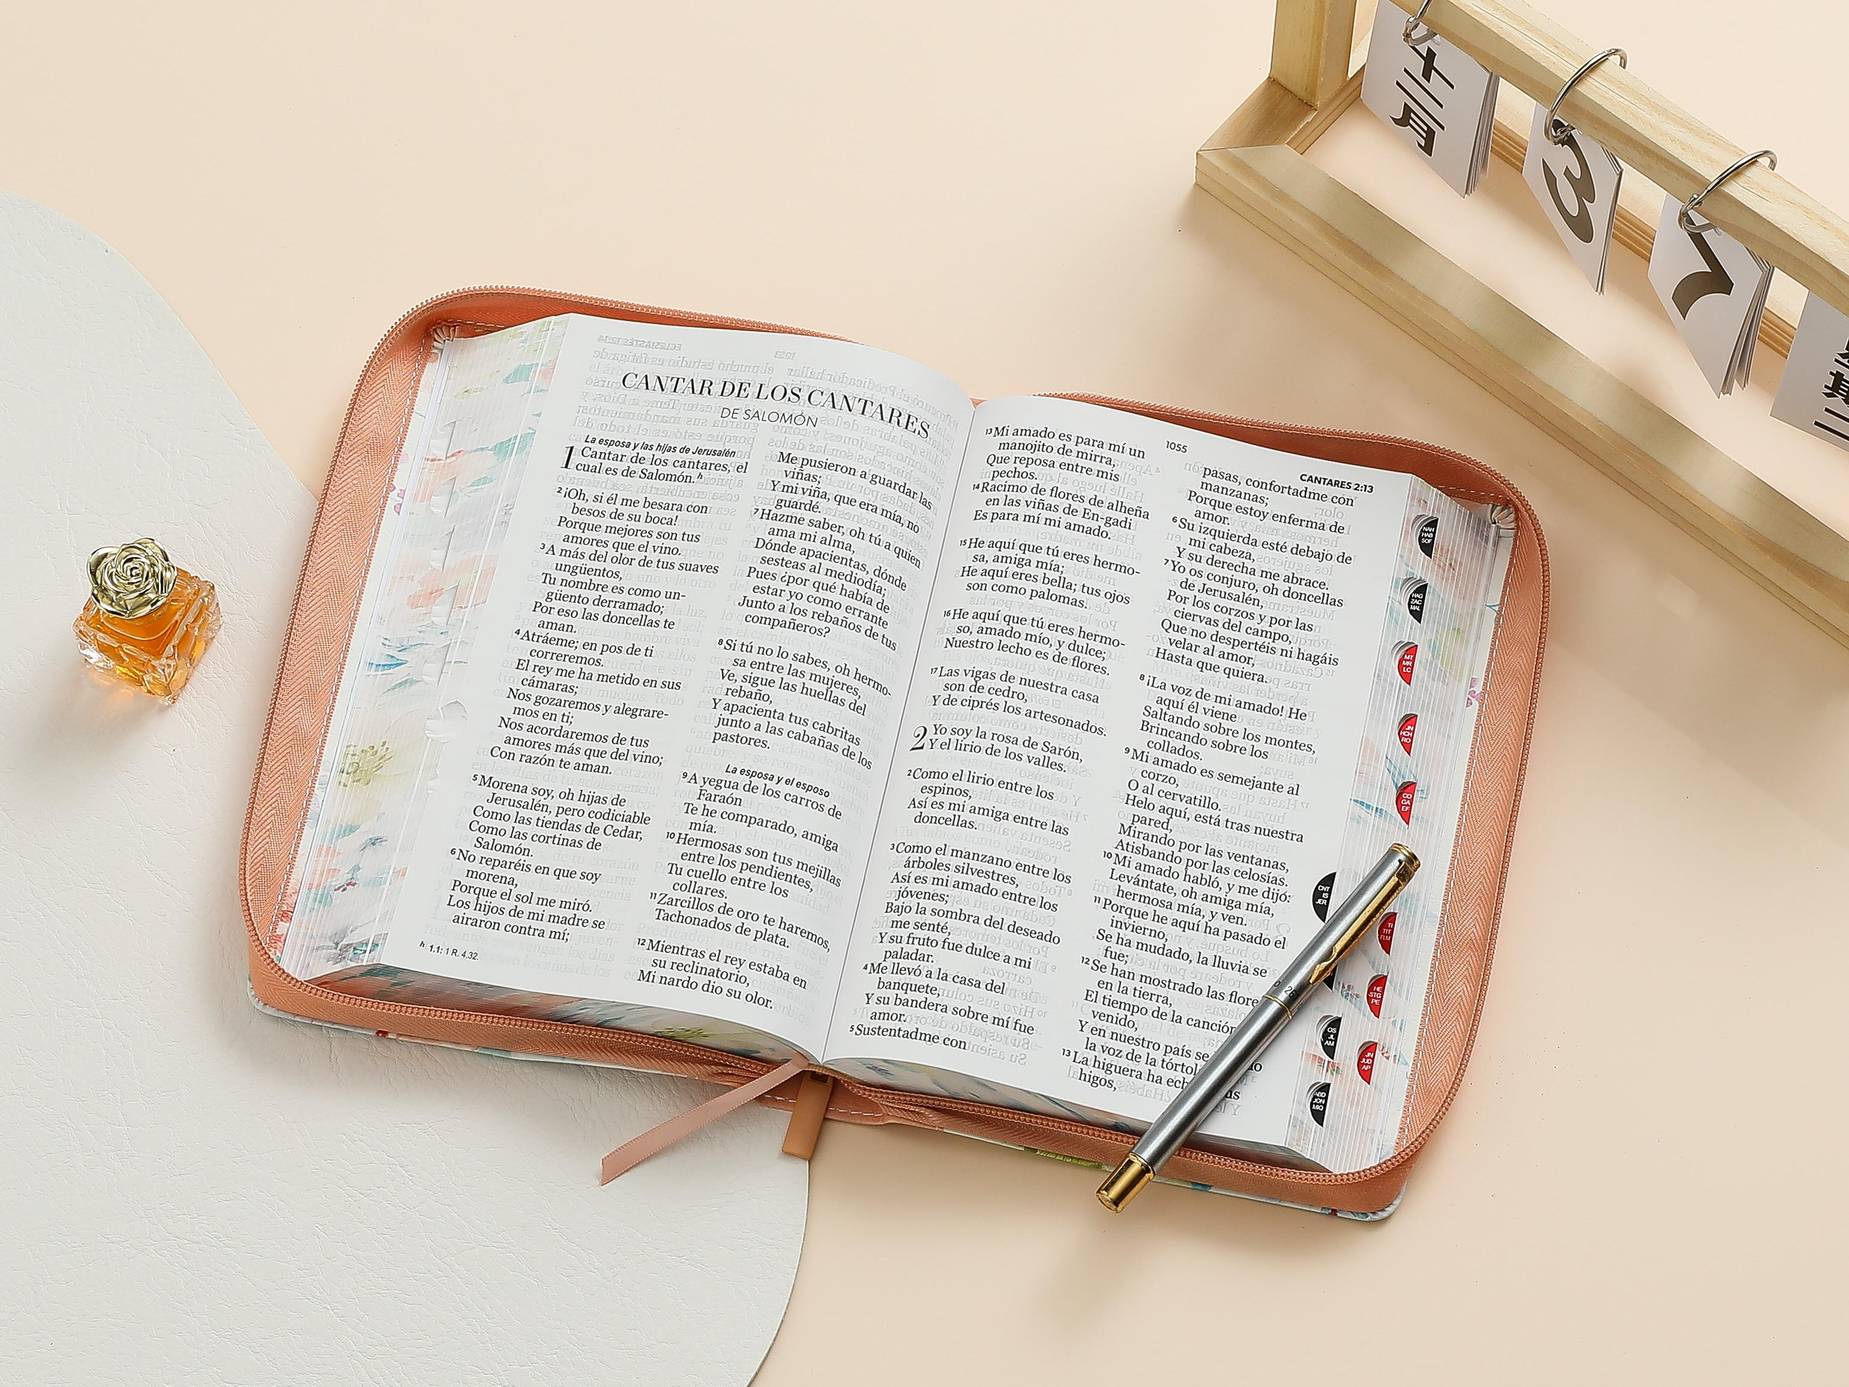 CANTAR DE LOS CANTARES
DE SALOMÓN
La esposa y las hijas de Jerusalén
1 Cantar de los cantares, el
cual es de Salomón.ʰ
2 ¡Oh, si él me besara con
besos de su boca!
Porque mejores son tus
amores que el vino.
3 A más del olor de tus suaves
ungüentos,
Tu nombre es como un-
güento derramado;
Por eso las doncellas te
aman.
4 Atráeme; en pos de ti
correremos.
El rey me ha metido en sus
cámaras;
Nos gozaremos y alegrare-
mos en ti;
Nos acordaremos de tus
amores más que del vino;
Con razón te aman.
5 Morena soy, oh hijas de
Jerusalén, pero codiciable
Como las tiendas de Cedar,
Como las cortinas de
Salomón.
6 No reparéis en que soy
morena,
Porque el sol me miró.
Los hijos de mi madre se
airaron contra mí;
h 1.1: 1 R. 4.32.
Me pusieron a guardar las
viñas;
Y mi viña, que era mía, no
guardé.
7 Hazme saber, oh tú a quien
ama mi alma,
Dónde apacientas, dónde
sesteas al mediodía;
Pues ¿por qué había de
estar yo como errante
Junto a los rebaños de tus
compañeros?
8 Si tú no lo sabes, oh hermo-
sa entre las mujeres,
Ve, sigue las huellas del
rebaño,
Y apacienta tus cabritas
junto a las cabañas de los
pastores.
La esposa y el esposo
9 A yegua de los carros de
Faraón
Te he comparado, amiga
mía.
10 Hermosas son tus mejillas
entre los pendientes,
Tu cuello entre los
collares.
11 Zarcillos de oro te haremos,
Tachonados de plata.
12 Mientras el rey estaba en
su reclinatorio,
Mi nardo dio su olor.
1055
CANTARES 2:13
13 Mi amado es para mí un
manojito de mirra,
Que reposa entre mis
pechos.
14 Racimo de flores de alheña
en las viñas de En-gadi
Es para mí mi amado.
15 He aquí que tú eres hermo-
sa, amiga mía;
He aquí eres bella; tus ojos
son como palomas.
16 He aquí que tú eres hermo-
so, amado mío, y dulce;
Nuestro lecho es de flores.
17 Las vigas de nuestra casa
son de cedro,
Y de ciprés los artesonados.
2 Yo soy la rosa de Sarón,
Y el lirio de los valles.
2 Como el lirio entre los
espinos,
Así es mi amiga entre las
doncellas.
3 Como el manzano entre los
árboles silvestres,
Así es mi amado entre los
jóvenes;
Bajo la sombra del deseado
me senté,
Y su fruto fue dulce a mi
paladar.
4 Me llevó a la casa del
banquete,
Y su bandera sobre mí fue
amor.
5 Sustentadme con
pasas, confortadme con
manzanas;
Porque estoy enferma de
amor.
6 Su izquierda esté debajo de
mi cabeza,
Y su derecha me abrace.
7 Yo os conjuro, oh doncellas
de Jerusalén,
Por los corzos y por las
ciervas del campo,
Que no despertéis ni hagáis
velar al amor,
Hasta que quiera.
8 ¡La voz de mi amado! He
aquí él viene
Saltando sobre los montes,
Brincando sobre los
collados.
9 Mi amado es semejante al
corzo,
O al cervatillo.
Helo aquí, está tras nuestra
pared,
Mirando por las ventanas,
Atisbando por las celosías.
10 Mi amado habló, y me dijo:
Levántate, oh amiga mía,
hermosa mía, y ven.
11 Porque he aquí ha pasado el
invierno,
Se ha mudado, la lluvia se
fue;
12 Se han mostrado las flore
en la tierra,
El tiempo de la canción
venido,
Y en nuestro país se
la voz de la tórtol
13 La higuera ha ech
higos,
NAH
HAB
SOF
HAG
ZAC
MAL
MT
MR
LC
JN
HCH
RO
CO
GA
EF
CNT
IS
JER
TI
TIT
FLM
HE
STG
PE
OS
JL
AM
JN
JUD
AP
ABD
JON
MIQ
十二月
3
7
期二